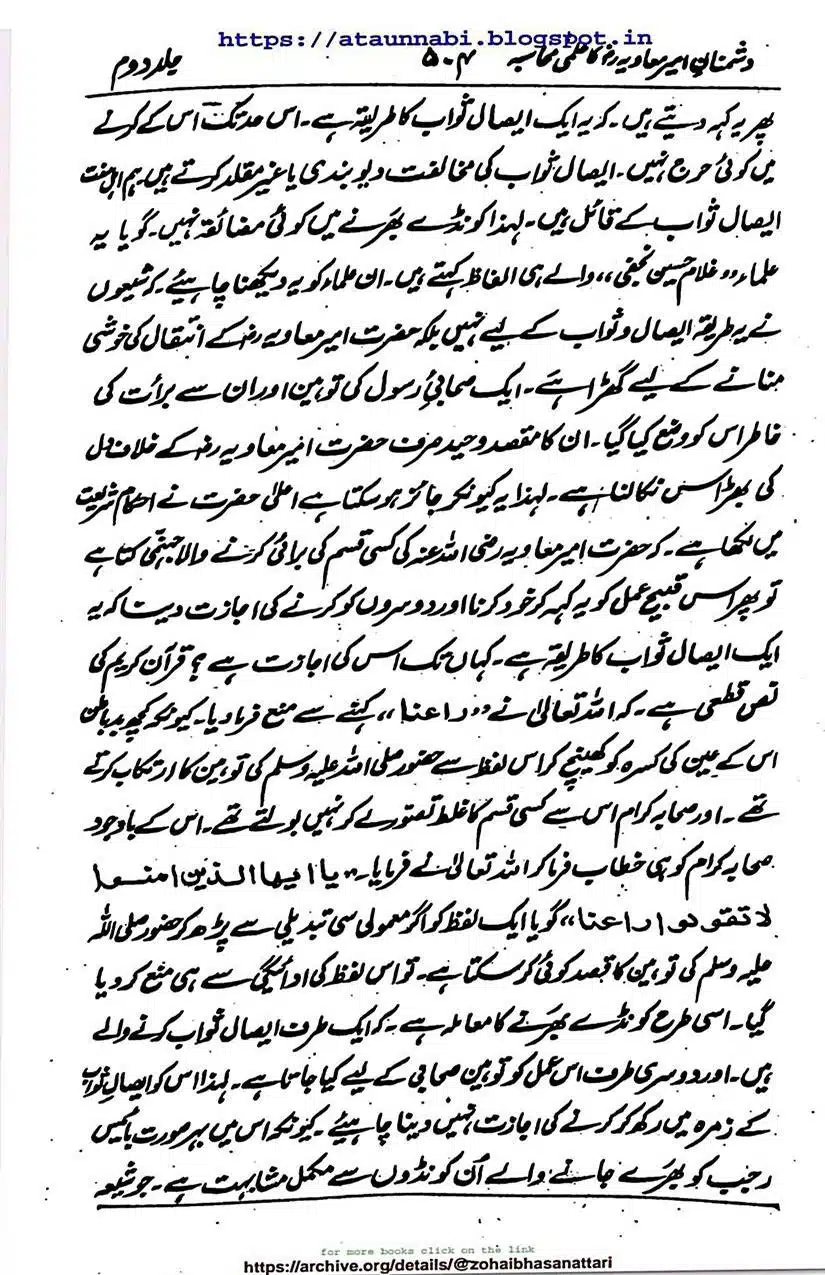 https://ataunnabi.blogspot.in
دشمنانِ امیر معاویہ رضہ کا علمی محاسبہ ۵۰۴ جلد دوم
پھر یہ کہہ دیتے ہیں۔ کہ یہ ایک ایصال ثواب کا طریقہ ہے۔ اس حد تک اس کے کرنے
میں کوئی حرج نہیں۔ ایصال ثواب کی مخالفت دیوبندی یا غیر مقلد کرتے ہیں ہم اہل سنت
ایصال ثواب کے قائل ہیں۔ لہذا کونڈے بھرنے میں کوئی مضائقہ نہیں۔ گویا یہ
علماء ،،غلام حسین نجفی،، والے ہی الفاظ کہتے ہیں۔ ان علماء کو یہ دیکھنا چاہیئے۔ کہ شیعوں
نے یہ طریقہ ایصال و ثواب کے لیے نہیں بلکہ حضرت امیر معاویہ رضہ کے انتقال کی خوشی
منانے کے لیے گھڑا ہے۔ ایک صحابئ رسول کی توہین اور ان سے برأت کی
خاطر اس کو وضع کیا گیا۔ ان کا مقصد وحید صرف حضرت امیر معاویہ رضہ کے خلاف دل
کی بھڑاس نکالنا ہے۔ لہذا یہ کیونکر جائز ہو سکتا ہے اعلیٰ حضرت نے احکام شریعت
میں لکھا ہے۔ کہ حضرت امیر معاویہ رضی اللہ عنہ کی کسی قسم کی برائی کرنے والا جہنمی کتا ہے
تو پھر اس قبیح عمل کو یہ کہہ کر خود کرنا اور دوسروں کو کرنے کی اجازت دینا کہ یہ
ایک ایصال ثواب کا طریقہ ہے۔ کہاں تک اس کی اجازت ہے؟ قرآن کریم کی
نص قطعی ہے۔ کہ اللہ تعالیٰ نے ،،راعنا،، کہنے سے منع فرما دیا۔ کیونکہ کچھ بد باطن
اس کے عین کی کسرہ کو کھینچ کر اس لفظ سے حضور صلی اللہ علیہ وسلم کی توہین کا ارتکاب کرتے
تھے۔ اور صحابہ کرام اس سے کسی قسم کا غلط تصور لے کر نہیں بولتے تھے۔ اس کے باوجود
صحابہ کرام کو ہی خطاب فرما کر اللہ تعالیٰ نے فرمایا۔ ،،یا ایھا الذین امنوا
لا تقولوا راعنا،، گویا ایک لفظ کو اگر معمولی سی تبدیلی سے پڑھ کر حضور صلی اللہ
علیہ وسلم کی توہین کا قصد کوئی کر سکتا ہے۔ تو اس لفظ کی ادائیگی سے ہی منع کر دیا
گیا۔ اسی طرح کونڈے بھرنے کا معاملہ ہے۔ کہ ایک طرف ایصال ثواب کرنے والے
ہیں۔ اور دوسری طرف اس عمل کو توہین صحابی کے لیے کیا جاتا ہے۔ لہذا اس کو ایصال ثواب
کے زمرہ میں رکھ کر کرنے کی اجازت نہیں دینا چاہیئے۔ کیونکہ اس میں بہر صورت بائیس
رجب کو بھرے جانے والے اُن کونڈوں سے مکمل مشابہت ہے۔ جو شیعہ
for more books click on the link
https://archive.org/details/@zohaibhasanattari